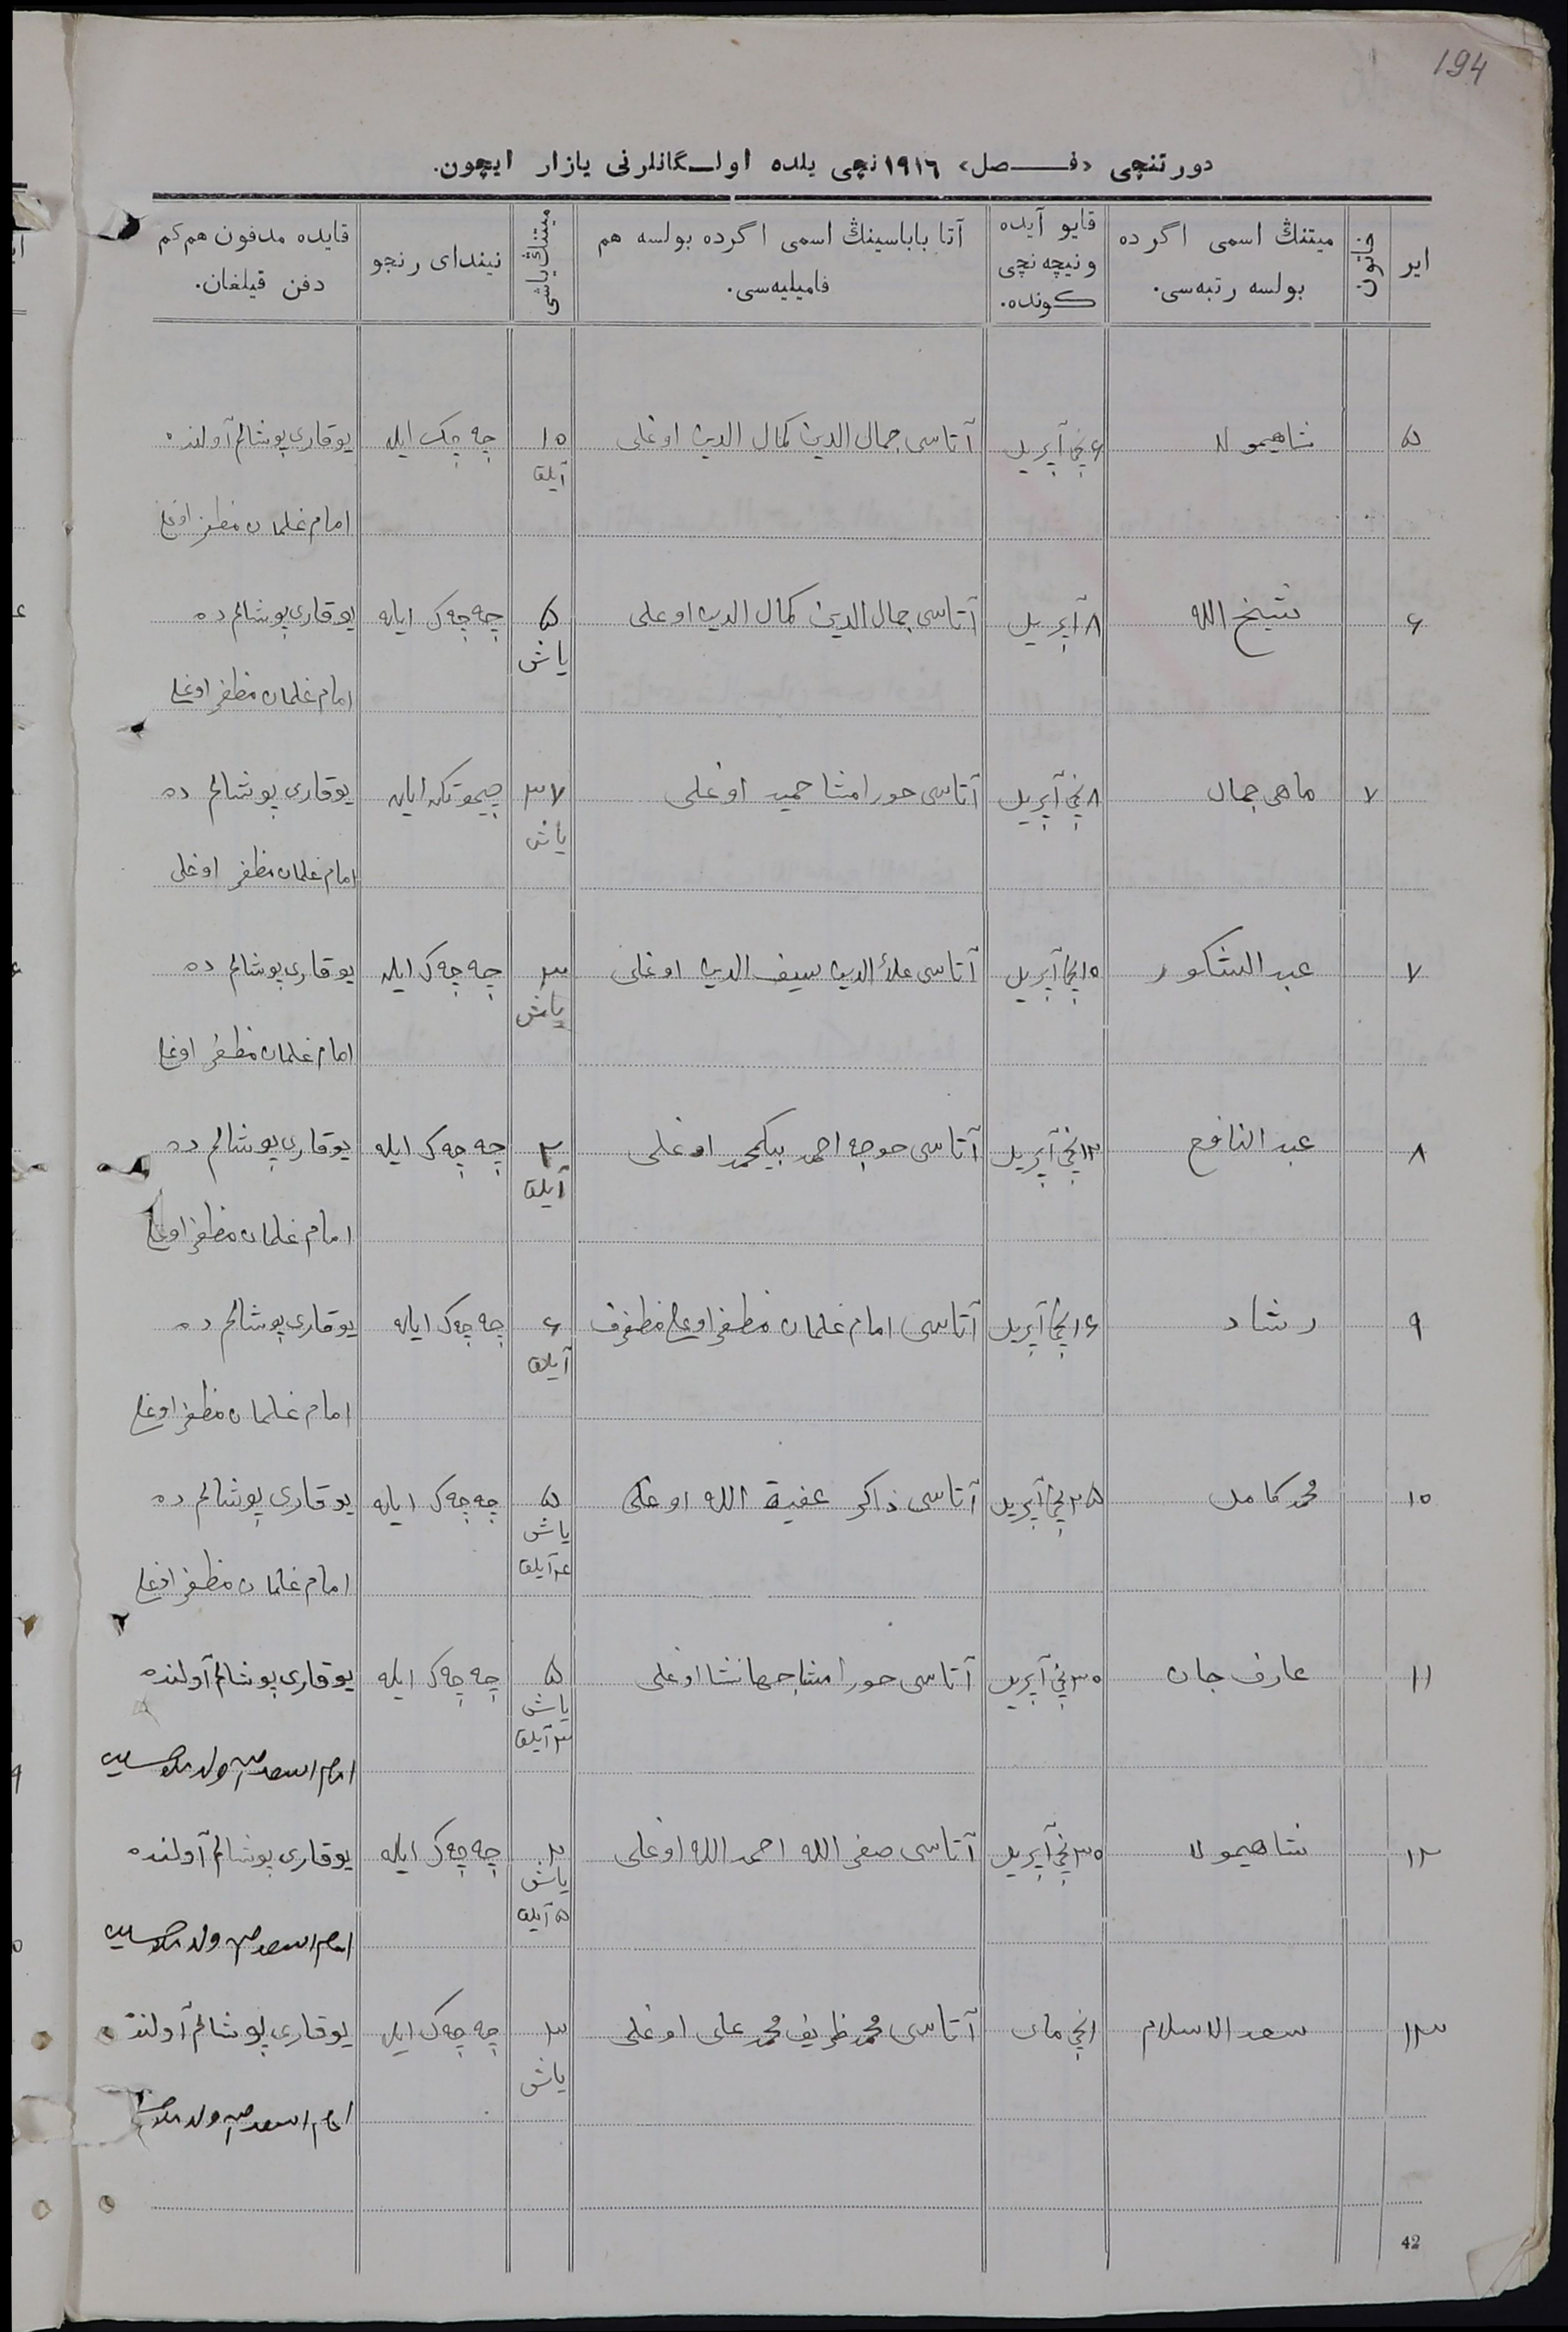 194
دورتنچی «فـــصل» ١٩١٦نچی یلده اولـگانلرنی یازار ایچون.
ایر
خاتون
میتنڭ اسمی اگرده بولسه رتبه‌سی.
قایو آیده ونیچه‌نچی كونده.
آتا باباسینڭ اسمی اگرده بولسه هم فامیلیه‌سی.
میتنڭ یاشی
نیندای رنجو
قایده مدفون هم كم دفن قیلغان.
۵ شاهیمولا ۶نچی آپریل آتاسی جمال الدین كمال الدین اوغلی ۱۰ آیلق چه چك ایله یوقاری پوشالم آولنده
امام غلمان مظفر اوغلی
۶ شیخ الله ۸ آپریل آتاسی جمال الدین كمال الدین اوغلی ۵ یاش چه چه‌ك ایله یوقاری پوشالم ده
امام غلمان مظفر اوغلی
۷ ماهی جمال ۸نچی آپریل آتاسی حورامشا حمید اوغلی ۳۷ یاش ایله یوقاری پوشالم ده
امام غلمان مظفر اوغلی
۷ عبد الشكور ۱۰نچی آپریل آتاسی علاء الدین سیف الدین اوغلی ۳ یاش چه چه‌ك ایله یوقاری پوشالم ده
امام غلمان مظفر اوغلی
۸ عبد النافع ۱۲نچی آپریل آتاسی خوجه احمد بیكمحمد اوغلی ۲ آیلق چه چه‌ك ایله یوقاری پوشالم ده
امام غلمان مظفر اوغلی
۹ رشاد ۱۶نچی آپریل آتاسی امام غلمان مظفر اوغلی مظفرف ۶ آیلق چه چه‌ك ایله یوقاری پوشالم ده
امام غلمان مظفر اوغلی
۱۰ محمد كامل ۲۵نچی آپریل آتاسی ذاكر الله اوغلی ۵ یاش آیلق چه چه‌ك ایله یوقاری پوشالم ده
امام غلمان مظفر اوغلی
۱۱ عارف جان ۳۰نچی آپریل آتاسی حورامشا جهانشا اوغلی ۵ یاش ۳ آیلق چه چه‌ك ایله یوقاری پوشالم آولنده
امام
۱۲ شاهیمولا ۳۰نچی آپریل آتاسی صفی الله احمد الله اوغلی ۲ یاش ۵ آیلق چه چه‌ك ایله یوقاری پوشالم آولنده
امام
۱۳ سعد الاسلام ۱نچی مای آتاسی محمد ظریف محمد علی اوغلی ۳ یاش چه چه‌ك ایله یوقاری پوشالم آولنده
امام
42